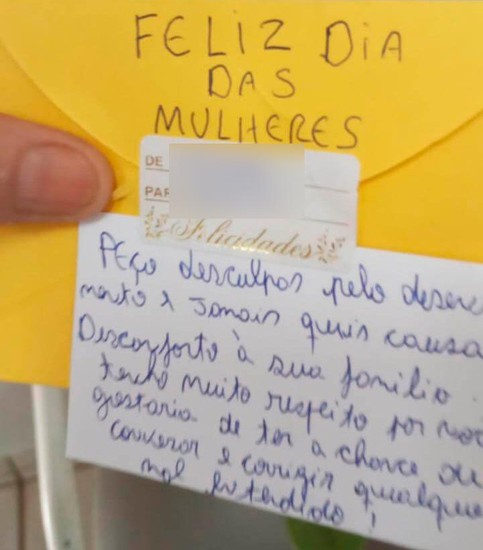 FELIZ DIA
DAS
MULHERES
DE
PAR
Felicidades
Peço desculpas pelo desen
mento e Jamais quis causa
Desconforto à sua família
tenho muito respeito por você
gostaria de ter a chance de
conversar e corrigir qualque
mal Entendido!